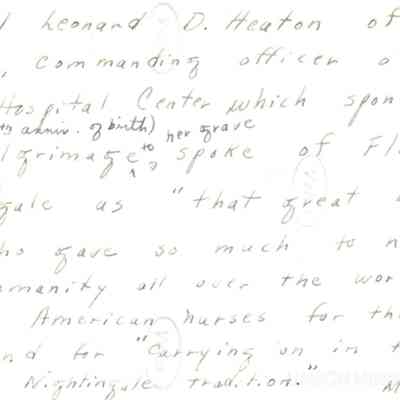 l Leonard D. Heaton of
, commanding officer o
Hospital Center which spon
th anniv. of birth) her grave
lgrimage to, spoke of Fl
gale as "that great
ho gave so much to n
manity all over the wor
American nurses for th
nd for "carrying on in t
Nightingale tradition." M